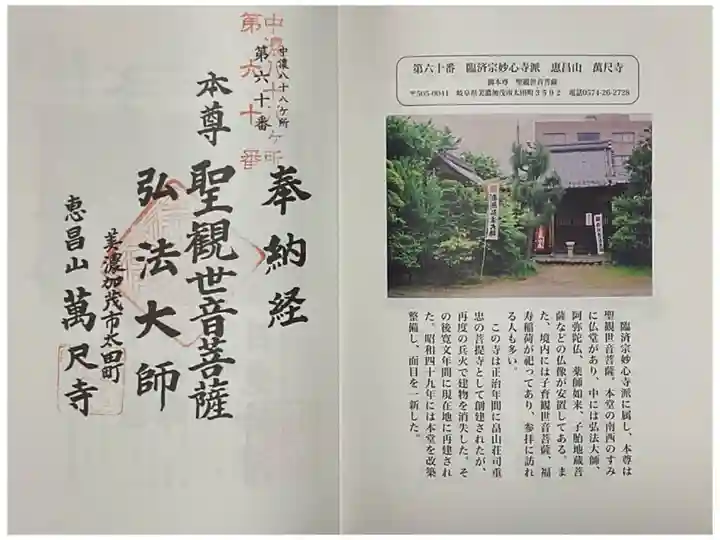 中濃八十八ヶ所
第六十番
中濃八十八ヶ所
第六十番
奉納経
本尊
聖観世音菩薩
弘法大師
美濃加茂市太田町
恵昌山
萬尺寺
第六十番 臨済宗妙心寺派 恵昌山 萬尺寺
御本尊 聖観世音菩薩
〒505-0041 岐阜県美濃加茂市太田町3592 電話0574-26-2728
臨済宗妙心寺派に属し、本尊は
聖観世音菩薩。本堂の南西のすみ
に仏堂があり、中には弘法大師、
阿弥陀仏、薬師如来、子胎地蔵菩
薩などの仏像が安置してある。ま
た、境内には子育観世音菩薩、福
寿稲荷が祀ってあり、参拝に訪れ
る人も多い。
この寺は正治年間に畠山荘司重
忠の菩提寺として創建されたが、
再度の兵火で建物を消失した。そ
の後寛文年間に現在地に再建され
た。昭和四十九年には本堂を改築
整備し、面目を一新した。